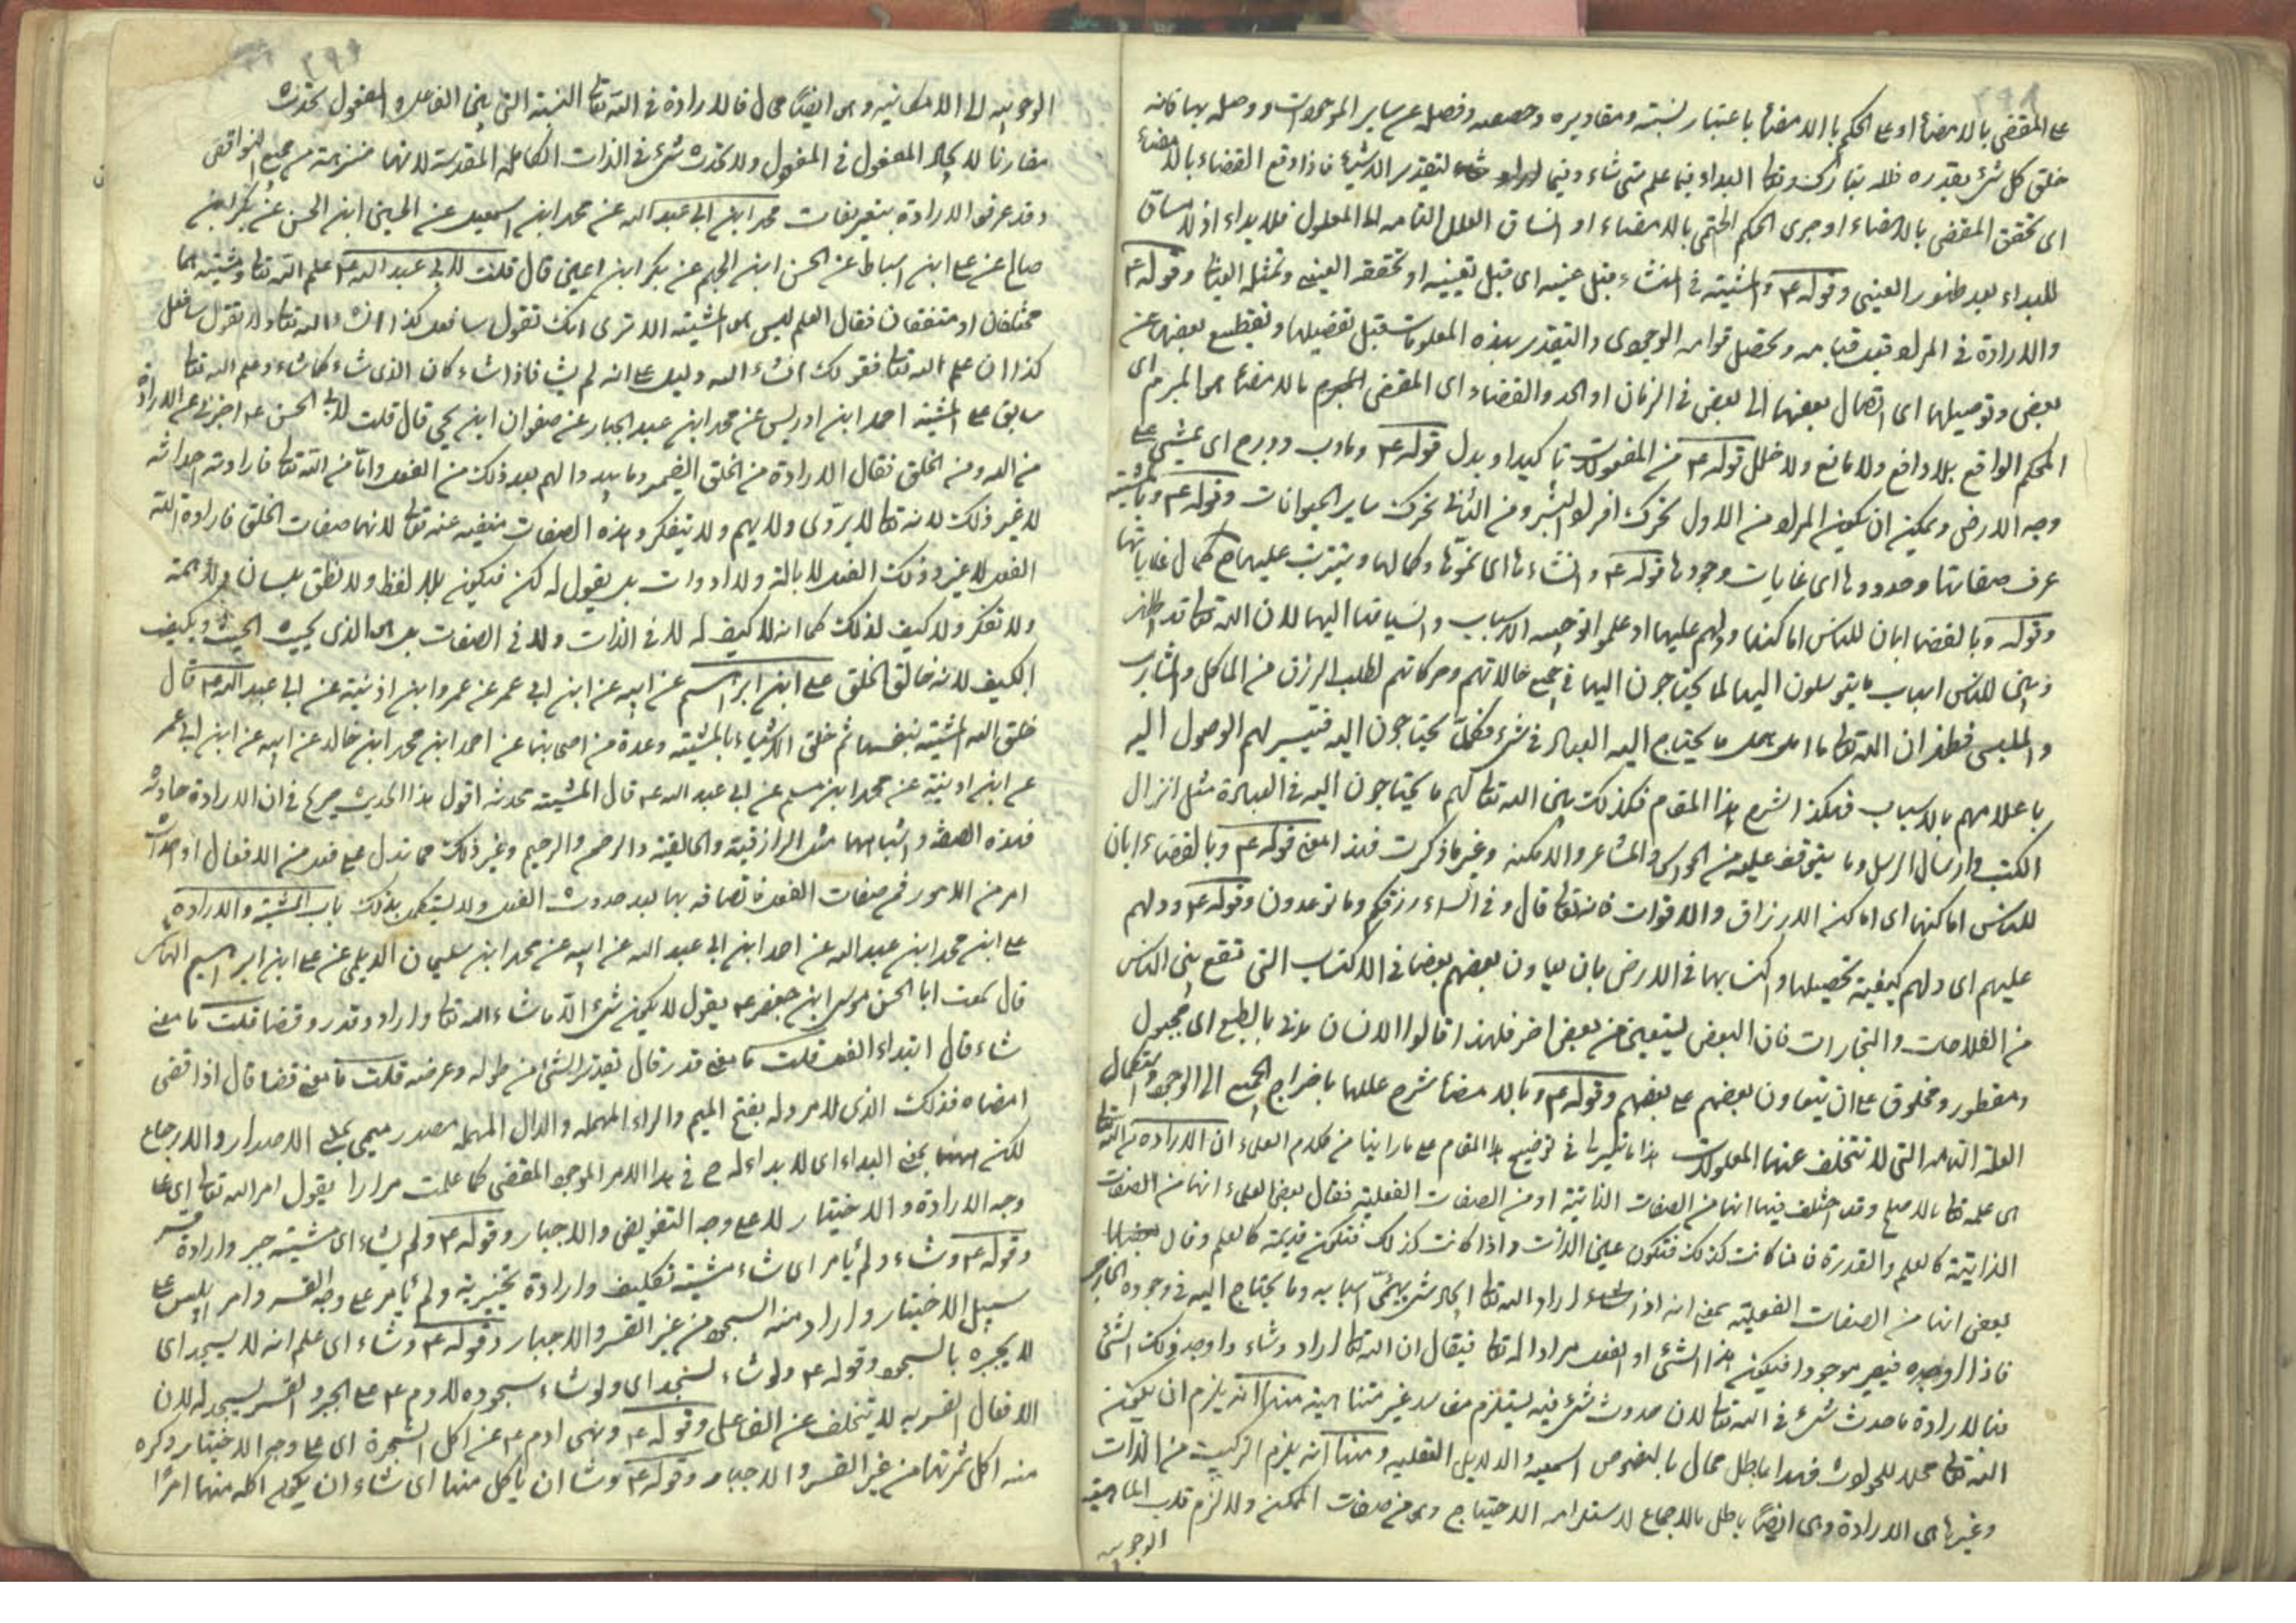 على المقضى بالامضاء او على الحكم بالامضاء باعتبار نسبته ومقاديره وفصله عن ساير الموجودات ووصله بها فانه
خلق كل شئ بقدره فلله تبارك وتعالى البداء فيما علم متى شاء وفيما اراد لتقدير الاشياء فاذا وقع القضاء بالامضاء
اى تحقق المقضى بالامضاء او جرى الحكم الحتمى بالامضاء او انساق العلل التامه الى المعلول فلا بداء اذ لا مساق
للبداء بعد ظهور العينى وقوله ع والمشيته فى المنشاء قبل عينه اى قبل تعيينه او تحققه العينى وتمثله العيانى وقوله ع
والارادة فى المراد قبل قيامه وتحصل قوامه الوجودى والتقدير بهذه المعلومات قبل تفضيلها وتقطيع بعضها عن
بعض وتوصيلها اى اتصال بعضها الى بعض فى الزمان او الحد والقضاء اى المقضى بالامضاء هو المبرم اى
المحكم الواقع بلا دافع ولا مانع ولا خلل قوله ع من المفعولات تاكيد او بدل قوله ع ومادب ودرج اى يمشى على
وجه الارض ويمكن ان يكون المراد من الاول تحرك افراد البشر ومن الثانى تحرك ساير الحيوانات وقوله ع وبالمشيته
عرف صفاتها وحدودها اى غايات وجودها قوله ع وانشاءها اى نموّها وكمالها ويترتب عليها ح كمال غاياتها
وقوله وبالقضا ابان للناس اماكنها ودلهم عليها او علموا توجيه الاسباب وانسياقها اليها لان الله تعالى قد اظهر
وبيّن للناس اسباب ما يتوسلون اليها لما يحتاجون اليها فى جميع حالاتهم وحركاتهم لطلب الرزق من الماكل والمشارب
والملبس فظهر ان الله تعالى ما يحتاج اليه العباد فى شئ فكلّ يحتاجون اليه فتيسر لهم الوصول اليه
باعلامهم بالاسباب فهكذا الشرح هذا المقام فكذلك بيّن الله تعالى لهم ما يحتاجون اليه فى العبادة مثل انزال
الكتب وارسال الرسل وما يتوقف عليه من الحواس والمشاعر والامكنه وغير ما ذكرت فهذا معنى قوله ع وبالقضاء ابان
للناس اماكنها اى اماكن الارزاق والاقوات فانه تعالى قال وفى السماء رزقكم وما توعدون وقوله ع ودلهم
عليهم اى دلهم كيفية تحصيلها واكتسابها فى الارض بان يعاون بعضهم بعضا فى الاكتساب التى تقع بين الناس
من الفلاحات والتجارات فان البعض يستعين من بعض اخر فلهذا قالوا الانسان مدنى بالطبع اى مجبول
ومفطور ومخلوق على ان يتعاون بعضهم على بعضهم وقوله ع وبالامضاء شرح عللها باخراج الجميع الى الوجود واستكمال
العلة التامه التى لا تتخلف عنها المعلولات هذا ما تيسر لى فى توضيح هذا المقام على ما راينا من كلام العلماء ان الارادة من الله تعالى
هى علمه تعالى بالاصلح وقد اختلف فيها انها من الصفات الذاتية او من الصفات الفعلية فقال بعض العلماء انها من الصفات
الذاتية كالعلم والقدرة فانها كانت كذلك فتكون عين الذات واذا كانت كذلك فتكون قديمة كالعلم وقال
بعض انها من الصفات الفعليه بمعنى انه اذا اراد الله تعالى ايجاد شئ يهيّئ اسبابه وما يحتاج اليه فى وجوده الخارجى
فاذا اوجده فيصير موجودا فيكون هذا الشئ او الفعل مراد الله تعالى فيقال ان الله تعالى اراد وشاء واوجد ذلك الشئ
فبالارادة ما حدث شئ فى الله تعالى لان حدوث شئ فيه يستلزم مفاسد غير متناهية منها انه يلزم ان يكون
الله تعالى محلا للحوادث فهذا باطل محال بالنصوص السمعيه والادليل العقليه ومنها انه يلزم التركيب من الذات
وغيرها هى الارادة وهى ايضًا باطل بالاجماع لاستلزامه الاحتياج وهى من صفات الممكن ولا لزم قلب الماهيته
الوجوبيه
الوجوبيه الى الامكانيه وهى ايضًا محال فالارادة فى الله تعالى النسبة التى بين الفاعل والمفعول تحدث
مقارنا لايجاد المفعول فى المفعول ولا تحدث شئ فى الذات الكامله المقدسة لانها منزهة من جميع النواقص
وقد عرفوا الارادة بتعريفات محمد ابن ابى عبد الله عن محمد ابن اسمعيل عن الحسين ابن الحسن عن بكر ابن
صالح عن على ابن اسباط عن الحسن ابن الجهم عن بكر ابن اعين قال قلت لابى عبد الله ع علم الله تعالى ومشيته هما
مختلفان او متفقان فقال العلم ليس هو المشيته الا ترى انك تقول سافعل كذا انشاء الله تعالى ولا تقول سافعل
كذا ان علم الله تعالى فقولك انشاء الله دليل على انه لم يشاء فاذا شاء كان الذى شاء كما شاء وعلم الله تعالى
سابق على المشيته احمد ابن ادريس عن محمد ابن عبد الجبار عن صفوان ابن يحيى قال قلت لابى الحسن ع اخبرنى عن الارادة
من الله ومن الخلق فقال الارادة من الخلق الضمير وما يبدوا لهم بعد ذلك من الفعل وامّا من الله تعالى فارادته احداثه
لا غير ذلك لانه تعالى لا يروّى ولا يهم ولا يتفكر وهذه الصفات منفيه عنه تعالى لانها صفات الخلق فارادة الله
الفعل لا غير ذلك الفعل لا بالة ولا ادوات بل يقول له كن فيكون بلا لفظ ولا نطق بلسان ولا همة
ولا تفكر ولا كيف لذلك كما انه لا كيف له لا فى الذات ولا فى الصفات بل هو الذى يحيث الحيث ويكيف
الكيف لانه خالق الخلق على ابن ابراهيم عن ابيه عن ابن ابى عمر عن عمر وابن اذنيته عن ابى عبد الله ع قال
خلق الله المشيته بنفسها ثم خلق الاشياء بالمشيته وعدة من اصحابنا عن احمد ابن محمد ابن خالد عن ابيه عن ابن ابى عمر
عن ابن اذنية عن محمد ابن مسلم عن ابى عبد الله ع قال المشيته محدثه اقول هذا الحديث صريح فى ان الارادة حادثه
فهذه الصفه واشباهها مثل الرازقية والخالقية والرحمن والرحيم وغير ذلك مما تدل على فعل من الافعال او احداث
امر من الامور فمن صفات الفعل فاتصافه بها بعد حدوث الفعل ولا يستكمل بذلك باب المشيته والارادة
على ابن محمد ابن عبد الله عن احمد ابن ابى عبد الله عن ابيه عن محمد ابن سليمان الديلمى عن على ابن ابراهيم الهاشمى
قال سمعت ابا الحسن موسى ابن جعفر ع يقول لا يكون شئ الّا ما شاء الله تعالى واراد وقدر وقضا قلت ما معنى
شاء قال ابتداء الفعل قلت ما معنى قدر قال تقدير الشئ من طوله وعرضه قلت ما معنى قضا قال اذا قضى
امضاه فذلك الذى لا مرد له بفتح الميم والراء المهمله والدال المهمله مصدر ميمى بمعنى الاصدار والارجاع
لكنه ههنا بمعنى البداء اى لا بداء له ح فى هذا الامر الموجود المقضى كما علمت مرارا يقول امر الله تعالى اى على
وجه الارادة والاختيار لا على وجه التفويض والاجبار وقوله ع ولم يشاء اى مشيته جبر وارادة قسر
وقوله ع وشاء ولم يأمر اى شاء مشيته تكليف وارادة تخييرية ولم يأمر على وجه القسر وامر ابليس على
سبيل الاختيار واراد منه السجود من غير القسر والاجبار وقوله ع وشاء اى علم انه لا يسجد اى
لا يجبره بالسجود وقوله ع ولو شاء لسجد اى ولو شاء سجوده لادم ع على الجبر والقسر ليسجد له لان
الافعال القسريه لا يتخلف عن الفاعل وقوله ع ونهى ادم ع عن اكل الشجرة اى على وجه الاختيار وكره
منه اكل ثمرتها من غير القسر والاجبار وقوله ع وشا ان ياكل منها اى شاء ان يكون اكله منها امرًا